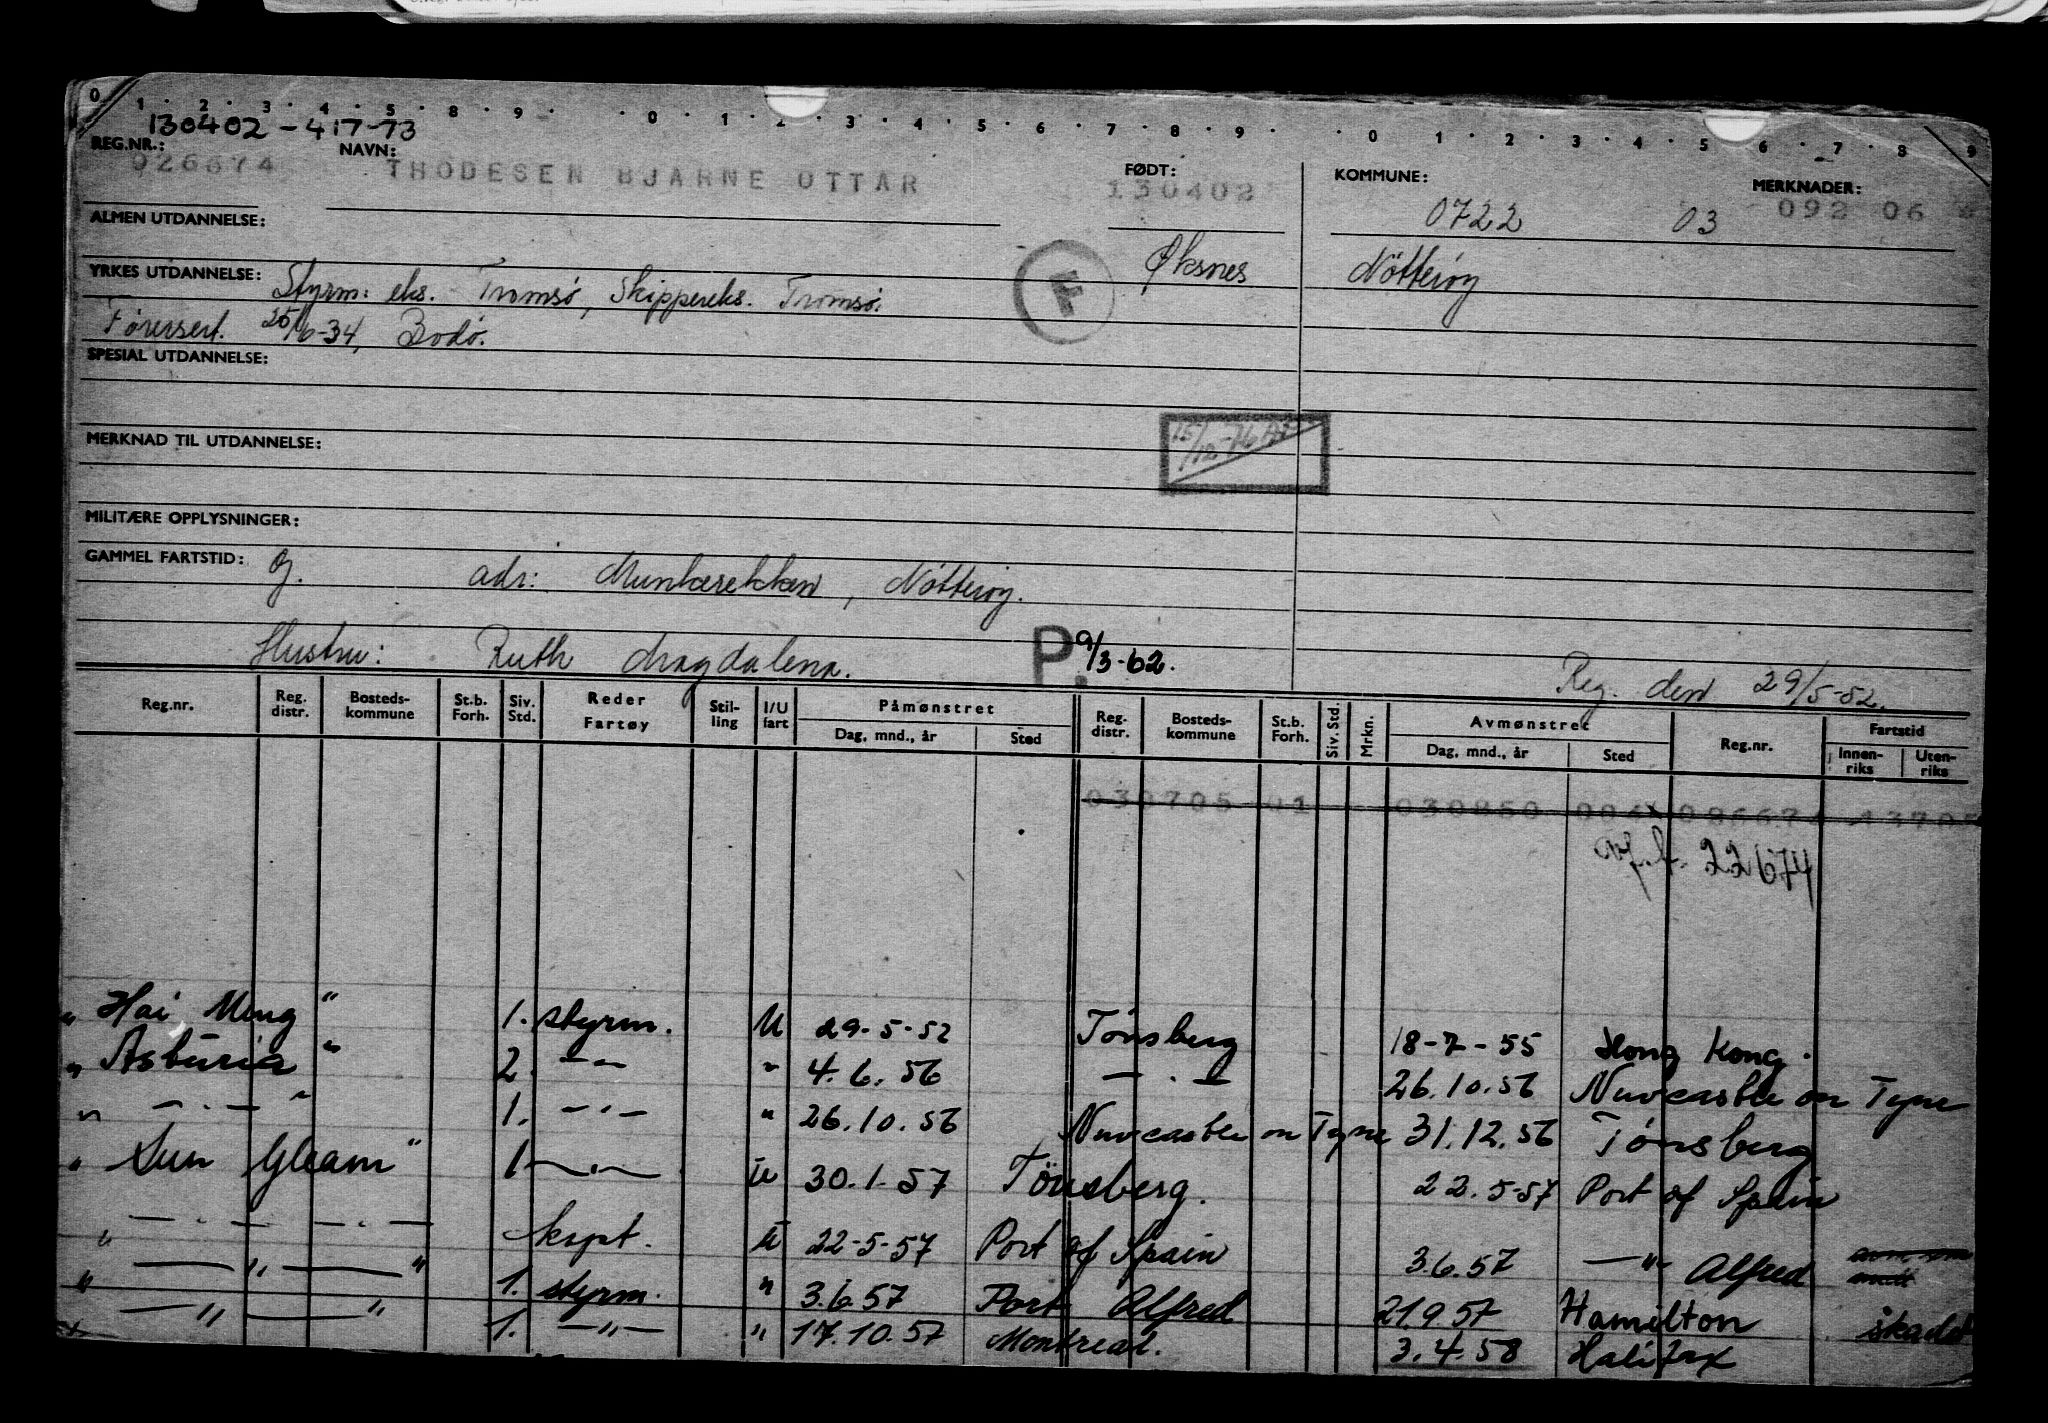 0 1 2 3 4 5 8 9 0 1 2 3 4 5 6 7 8 9 0 1 2 3 4 5 6 7 8 9
130402-417-73
REG.NR.: NAVN: FØDT: KOMMUNE: MERKNADER:
026674 THODESEN BJARNE OTTAR 130402 0722 03 092 06
ALMEN UTDANNELSE:
Øksnes Nötterøy
YRKES UTDANNELSE: Styrm: eks. Tromsø, Skippereks. Tromsø.
F
Førersert. 25/6-34, Bodø.
SPESIAL UTDANNELSE:
MERKNAD TIL UTDANNELSE:
15/12-76
MILITÆRE OPPLYSNINGER:
GAMMEL FARTSTID: Og. adr: Munkerekken, Nötterøy.
Hustru: Ruth Magdalena. P. 9/3-62.
Reg. den 29/5-52.
Reg.nr. Reg. distr. Bosteds-kommune St.b. Forh. Siv. Std. Reder Fartøy Stil-ling I/U fart Påmønstret Dag, mnd., år Sted Reg. distr. Bosteds-kommune St.b. Forh. Siv. Std. Mrkn. Avmønstret Dag, mnd., år Sted Reg.nr. Fartstid Innen-riks Uten-riks
030705 01 030850 004 026674 1370
" Hai Meng " 1. styrm. U 29-5-52 Tønsberg 18-7-55 Hong Kong.
" Asturia " 2. -"- " 4.6.56 - . - 26.10.56 Newcastle on Tyne
" - . - " 1. - . - " 26.10.56 Newcastle on Tyne 31.12.56 Tønsberg
" Sun Gleam " 1 - . - U 30.1.57 Tönsberg. 22.5-57 Port of Spain
" - . - - . - skpt. U 22-5-57 Port of Spain 3.6.57 -"- Alfred
" - " - " 1. styrm. " 3.6.57 Port Alfred 21.9.57 Hamilton skadet
- " - " 1. -"- " 17.10.57 Montreal. 3.4.58 Halifax